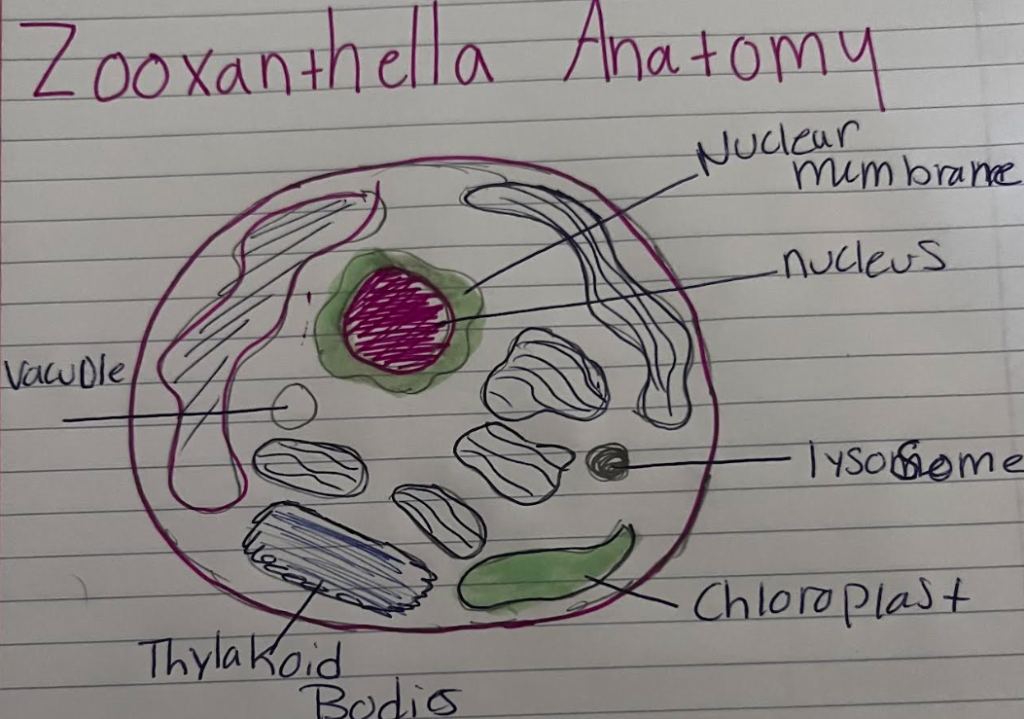 Zooxanthella Anatomy
Nuclear
membrane
nucleus
vacuole
lysosome
Chloroplast
Thylakoid
Bodies